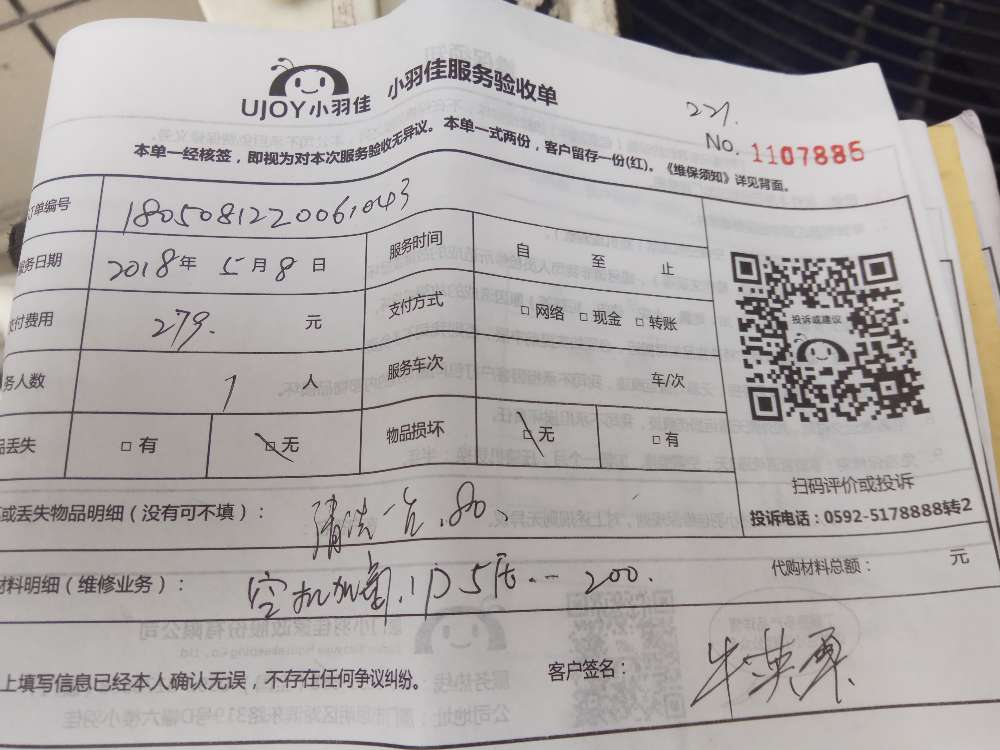 UJOY小羽佳 小羽佳服务验收单
221.
No. 1107886
本单一经核签，即视为对本次服务验收无异议。本单一式两份，客户留存一份(红)。《维保须知》详见背面。
订单编号 1805081220061043
服务日期 2018年 5月8日 服务时间 自 至 止
支付费用 279. 元 支付方式 □网络 □现金 □转账
务人数 1 人 服务车次 车/次
品丢失 □有 □无 物品损坏 □无 □有
投诉或建议
扫码评价或投诉
投诉电话：0592-5178888转2
或丢失物品明细（没有可不填）： 清洗一台.80.
材料明细（维修业务）： 空机加氟.1P5 200. 代购材料总额： 元
上填写信息已经本人确认无误，不存在任何争议纠纷。 客户签名： 牛英